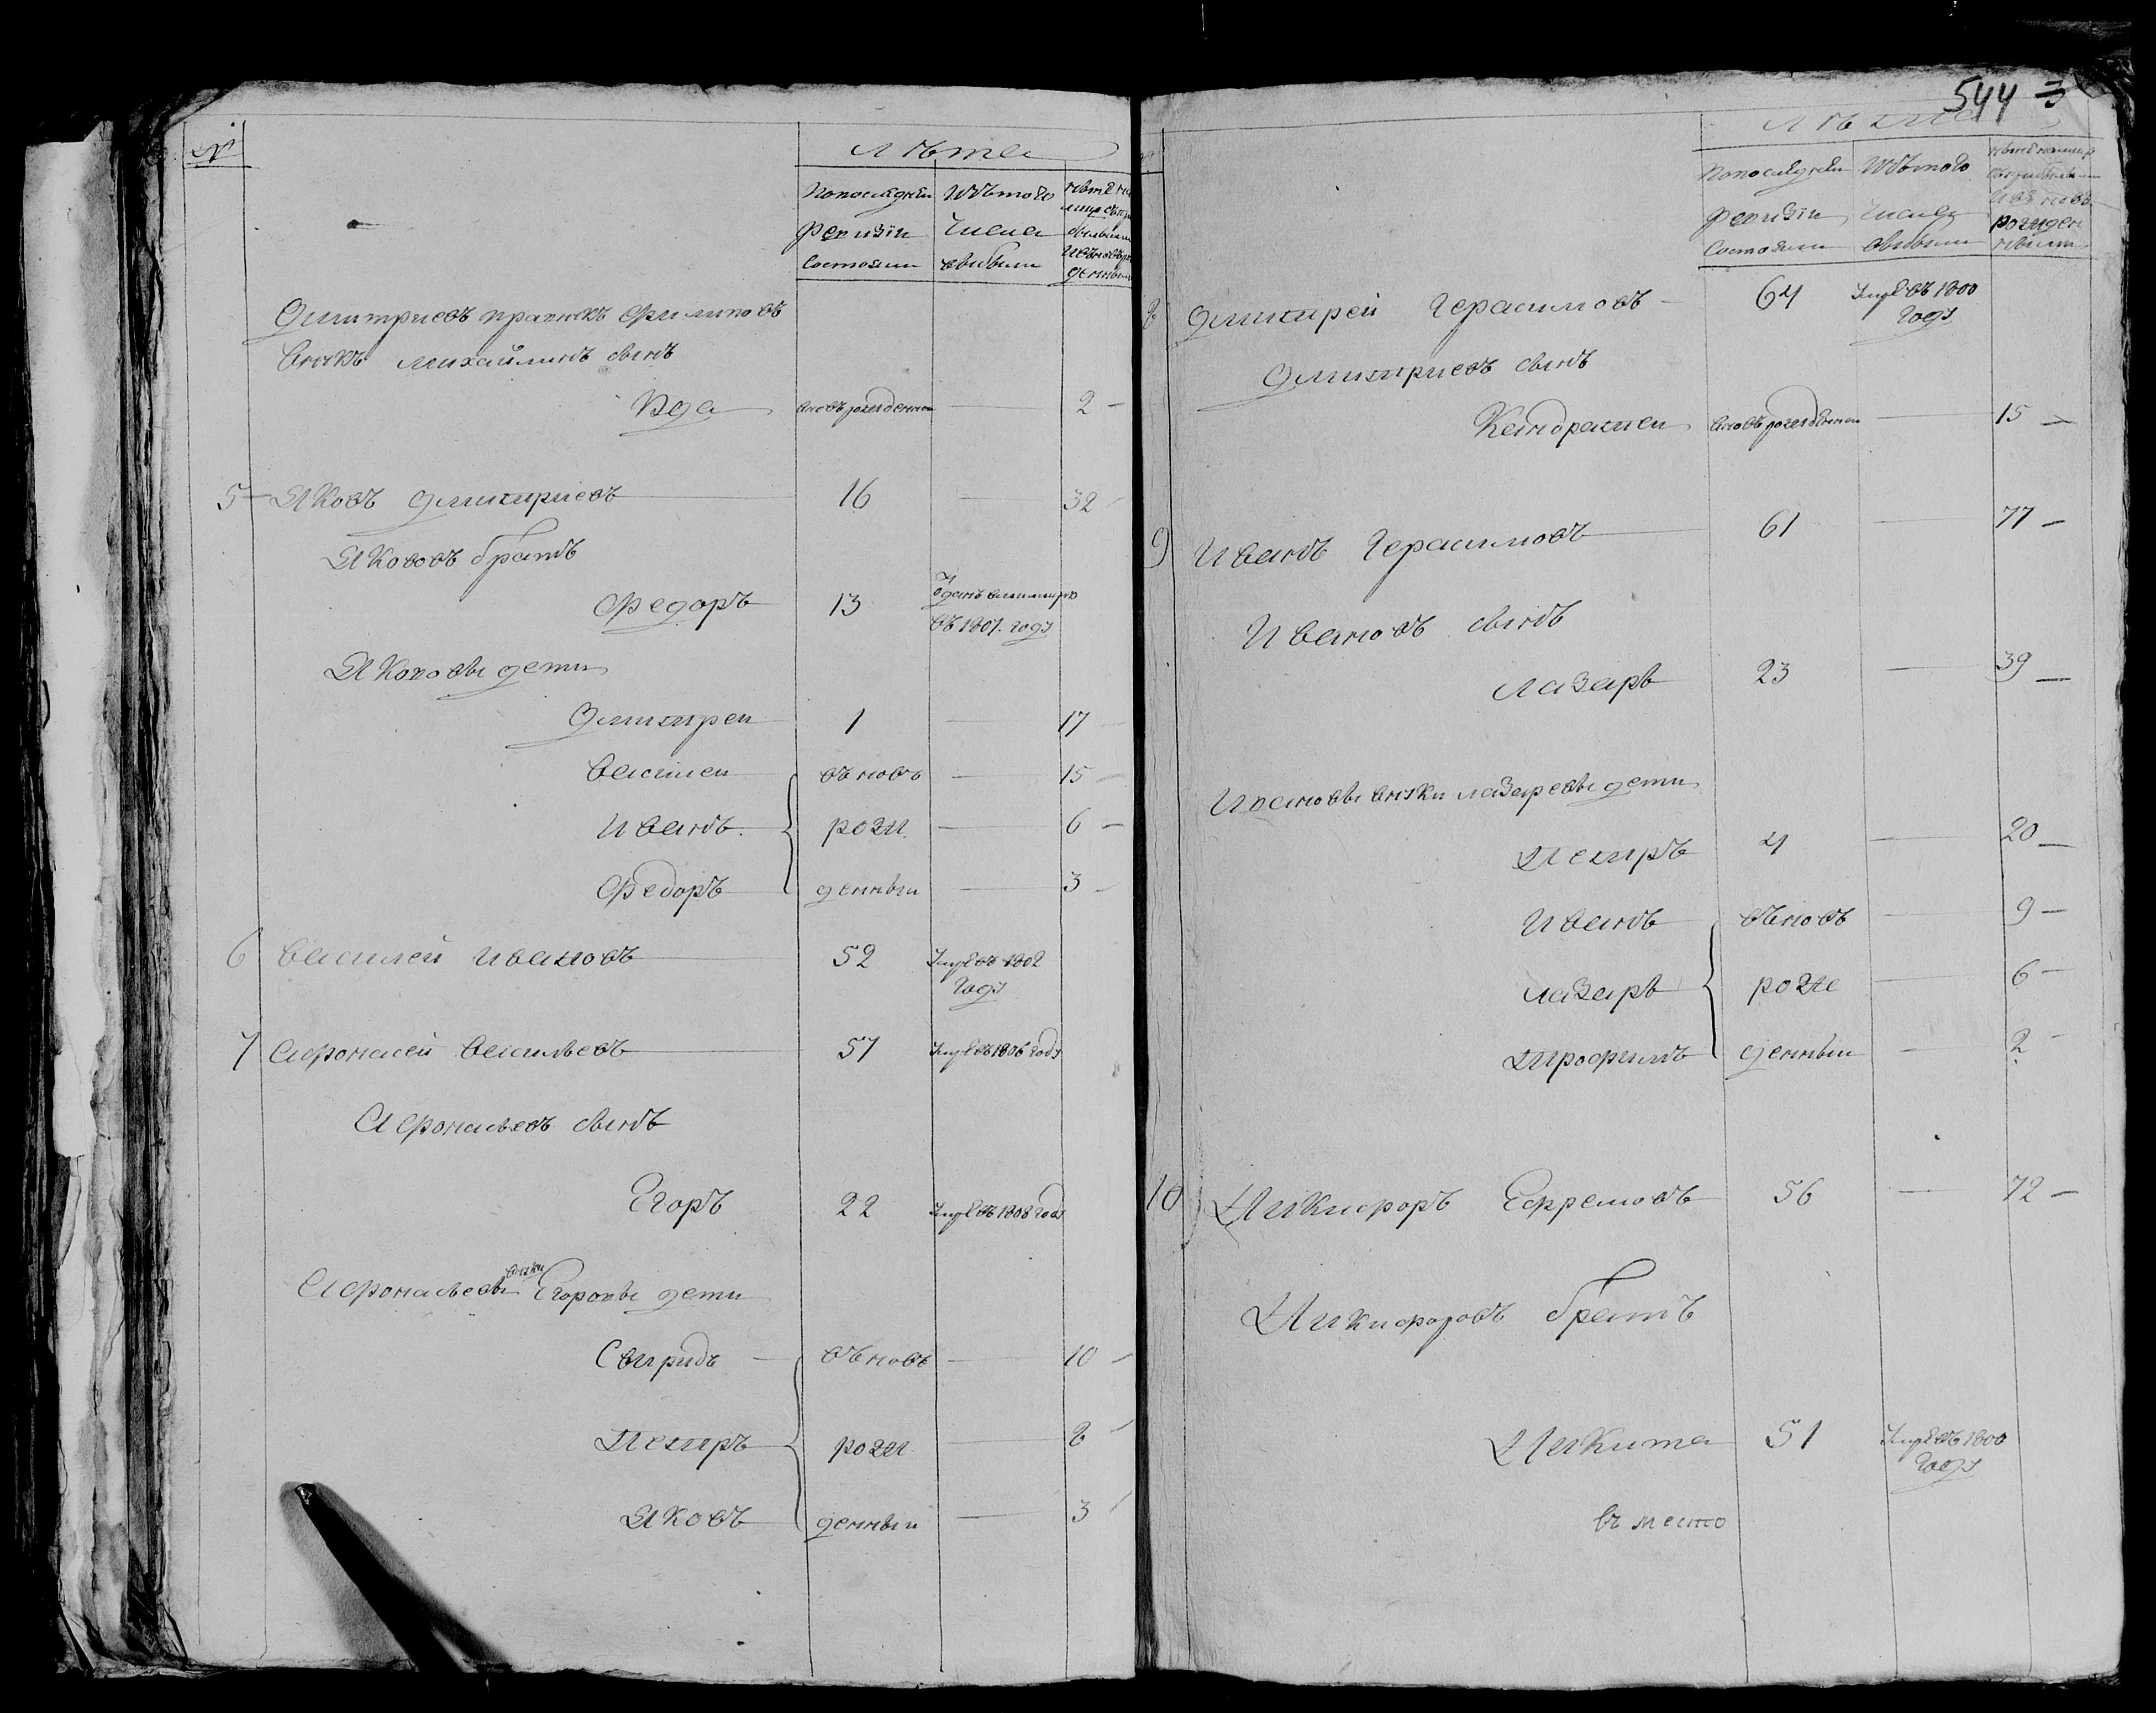 №
лѣта
попоследней
ревизiи
состояли
изътого
числа
выбыли
ныне на
лицо
Дмитриевъ правнукъ филиповъ
внукъ михайлинъ сынъ
вновь рожденной 2
5 Яковъ Дмитриевъ 16 32
Яковъ братъ
Федоръ 13 отданъ
въ 1807. году
Яковлевы дети
Дмитреи 1 17
василеи въновь 15
Иванъ рож 6
Федоръ денныи 3
6 василей ивановъ 52 умре въ 1802
году
7 Афонасей васильевъ 57 умре въ 1806 году
Афонасьевъ сынъ
Егоръ 22 умре въ 1808 году
внуки
Афонасьевы Егоровы дети
Свиридъ въновь 10
Петръ рож 8
Яковъ денныи 3
544 3
лѣта
попоследней
ревизiи
состояли
изътого
числа
выбыли
8 Дмитрей Герасимовъ 64 умре въ 1800
году
Дмитриевъ сынъ
Кандратеи вновь рожденнои 15
9 Иванъ Герасимовъ 61 77
Ивановъ сынъ
лазарь 23 39
Ивановы внуки лазаревы дети
Петръ 4 20
Иванъ въновь 9
лазарь рож 6
трофимъ денныи 2
10 Никифоръ Ефремовъ 56 72
Никифоровъ братъ
Никита 51 умре въ 1800
году
въ место